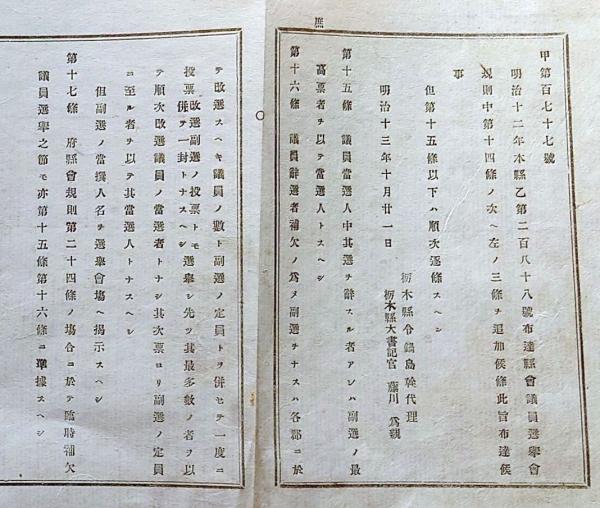 甲第百七十七號
明治十二年本縣乙第二百八十八號布達縣會議員選擧會
規則中第十四條ノ次ヘ左ノ三條ヲ追加候條此旨布達候
事
但第十五條以下ハ順次逐條スヘシ
栃木縣令鍋島幹代理
明治十三年十月廿一日
栃木縣大書記官 藤川爲親
第十五條 議員當選人中其選ヲ辭スル者アレハ副選ノ最
高票者ヲ以テ當選人トスヘシ
第十六條 議員辭選者補欠ノ爲メ副選ヲナスハ各郡ニ於
テ改選スヘキ議員ノ數ト副選ノ定員トヲ併セテ一度ニ
投票 改選副選ノ投票トモ併テ一封トナスヘシ 選擧シ先ツ其最多數ノ者ヲ以
テ順次改選議員ノ當選者トナシ其次票ヨリ副選ノ定員
ニ至ル者ヲ以テ其當選人トナスヘシ
但副選ノ當撰人名ヲ選擧會塲ヘ揭示スヘシ
第十七條 府縣會規則第二十四條ノ塲合ニ於テ臨時補欠
議員選擧之節モ亦第十五條第十六條ニ準據スヘシ